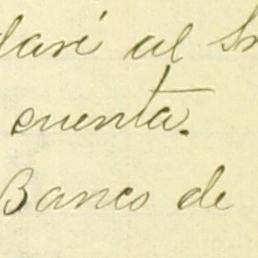 daré al Sr
cuenta.
Banco de